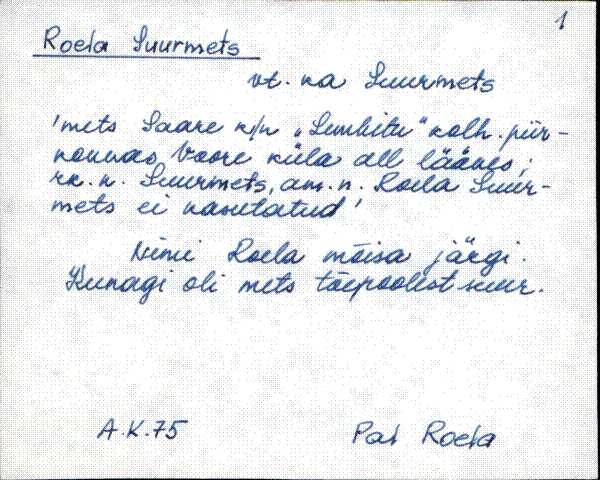 1
Roela Suurmets
vt. ka Suurmets
'mets Saare k/n „Lembitu" kolh. piir-
konnas Voore küla all läänes;
rk. n. Suurmets, am. n. Roela Suur-
mets ei kasutatud'
Nimi Roela mõisa järgi.
Kunagi oli mets tõepoolest suur.
A.K.75
Pal Roela